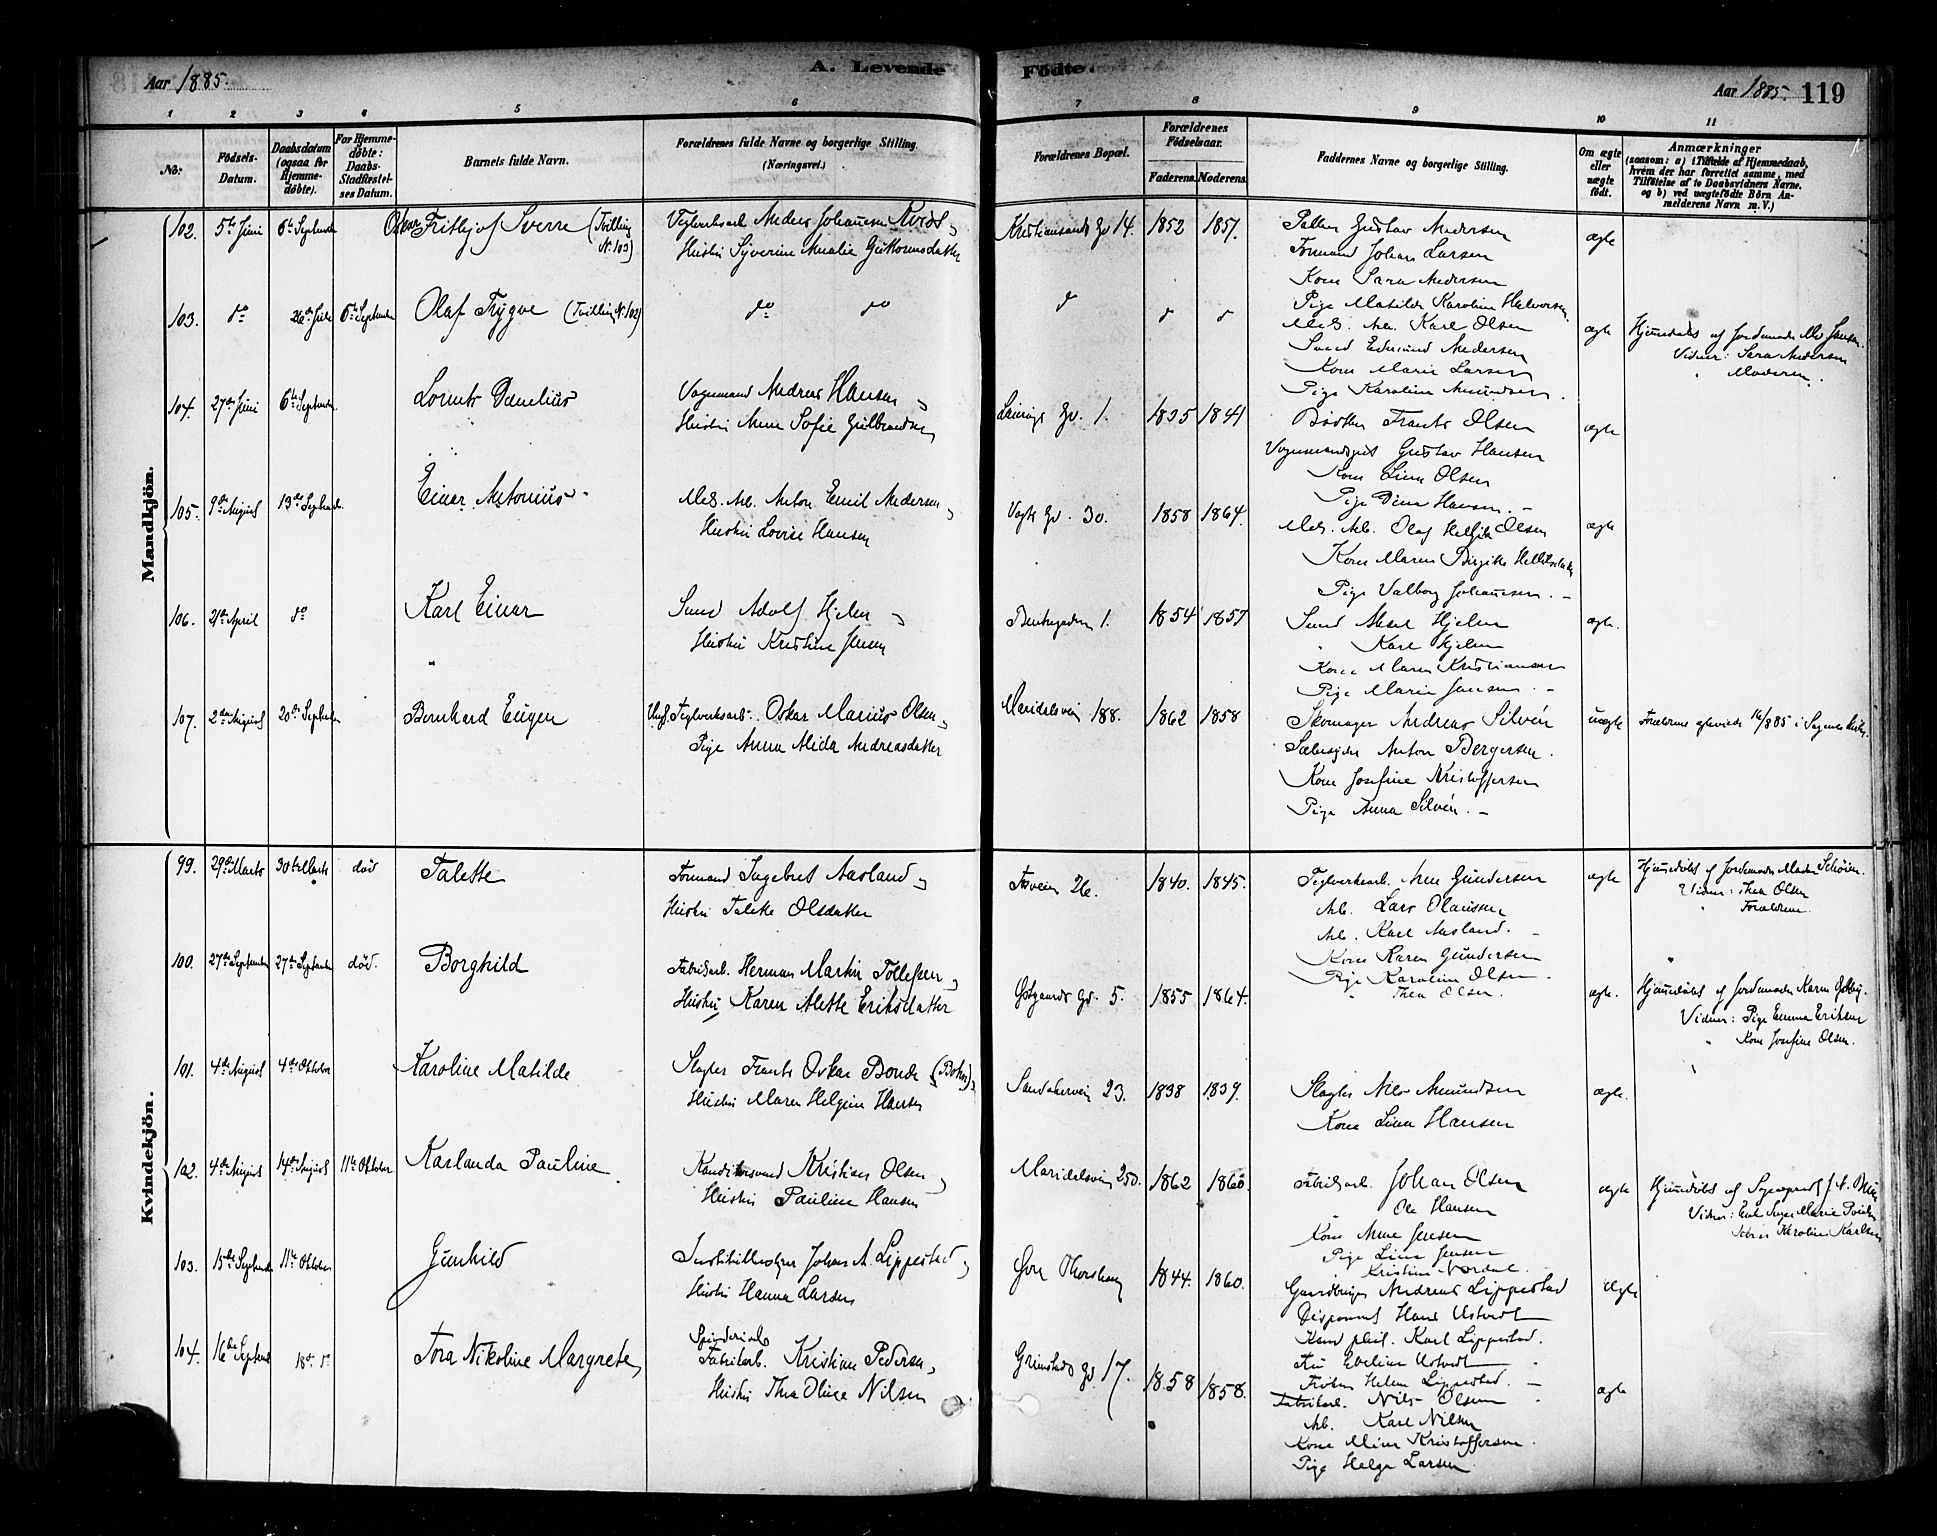 Aar 1885.
A. Levende
Födte.
Aar 1885. 119
1 2 3 4 5 6 7 8 9 10 11
No:
Födsels-Datum.
Daabsdatum (ogsaa för Hjemmedöbte).
For Hjemmedöbte: Daabs Stadfæstelses Datum.
Barnets fulde Navn.
Forældrenes fulde Navne og borgerlige Stilling.
(Næringsvei.)
Forældrenes Bopæl.
Forældrenes Födselsaar.
Faderens. Moderens.
Faddernes Navne og borgerlige Stilling.
Om ægte eller uægte födt.
Anmærkninger
(saasom: a) i Tilfælde af Hjemmedaab, hvem der har forrettet samme, med Tilföielse af to Daabsvidners Navne, og b) ved uægtefödte Börn Anmelderens Navn m. V.)
Mandkjön.
102. 5te Juni 6te September Oskar Fritjof Sverre (Tvilling N. 103)
Teglverksarb. Anders Johansen
Hustru Syverine Amalie Guttormsdatter
Kristiansands Gd 14. 1852 1857.
Gustav Andersen
Formand Johan Larsen
Kone Sara Andersen
Pige Matilde Karoline Halvorsen
ægte
103. do 26de Juli 6te September Olaf Trygve (Tvilling N. 102)
do do
Mek. Arb. Karl Olsen
Smed Edmund Andersen
Kone Marie Larsen
Pige Karoline Amundsen.
ægte
Hjemmedøbt af Jordemoder Jensen.
Vidner: Sara Andersen
" Moderen.
104. 27de Juni 6te September. Lorents Danelius
Vognmand Andreas Hansen
Hustru Anne Sofie Gulbrandsen
Gd. 1. 1835 1841
Bødker Frants Olsen
Gustav Hansen
Kone Lina Olsen
Pige Dina Hansen.
ægte
105. 9de August 13de September. Einar Antonius
Mek. Arb. Anton Emil Andersen
Hustru Lovise Hansen
Vogts Gd. 30. 1858 1864.
Mek. Arb. Olaf Olsen
Kone Maren Birgitte
Pige Valborg Johannesen.
ægte
106. 21de April do Karl Einar
Smed Adolf Hjelm
Hustru Kristine Jensen
Bentsegaden 1. 1854 1857
Smed Aksel Hjelm
" Karl Hjelm
Kone Maren Kristiansen
Pige Marie Jansen.
ægte.
107. 2den August 20de September Bernhard Eugen
Ungk. Teglverksarb. Oskar Marius Olsen
Pige Anna Alida Andreasdatter
Maridalsvein 188. 1862 1858
Skomager Andreas Silvén
Anton Bergersen.
Kone Josefine Kristoffersen
Pige Anna Silvén.
uægte
Forældrene ægteviede 16/8 85 i Sagene Kirke.
Kvindekjön.
99. 29de Marts 30te Marts död Talette
Formand Ingebret Aasland
Hustru Talette Olsdatter
Fosvein 26. 1840. 1845.
Teglverksarb. Arne Gundersen
Arb. Lars Olaussen
Arb. Karl Aasland.
Kone Karen Gundersen
Pige Karoline Olsen
" Thea Olsen.
ægte
Hjemmedøbt af Jordemoder Schöien.
Vidner: Thea Olsen
" Forældrene.
100. 27de September 27de September död. Borghild
Fabrikarb. Herman Martin Tollefsen
Hustru Karen Alette Eriksdatter
Østgaards Gd. 5. 1855 1864.
ægte.
Hjemmedøbt af Jordemoder Karen
Vidner: Pige Emma Eriksen
" Kone Josefine Olsen.
101. 4de August 4de Oktober Karoline Matilde
Slagter Frants Oskar Bonde
Hustru Maren Helgine Hansen
Sandakervein 23. 1838 1839.
Slagter Nils Amundsen
Kone Lina Hansen
ægte.
102. 4de August 14de August 11te Oktober Karlanda Pauline
Kristian Olsen
Hustru Pauline Hansen
Maridalsvein 250. 1862 1860.
Fabrikarb. Johan Olsen
Ole Hansen
Kone Anne Jensen
Pige Lina Jensen
Kristine Nordal
ægte
Hjemmedøbt af Sognepræst J. N.
Vidner: Marie
Karoline Karlsen
103. 15de September 11te Oktober Gunhild
Johan A. Lippestad
Hustru Hanna Larsen
Thorshaug 1844. 1860.
Gaardbruger Andreas Lippestad
Disponent Hans Ustvedt
Kand. phil. Karl Lippestad.
Fru Eveline Ustvedt
Frøken Helene Lippestad.
ægte
104. 16de Septemb 18de do Tora Nikoline Margrete
Spinderiarb
Fabrikarb. Kristian Pedersen
Hustru Thea Oline Nilsen
Grimstads Gd 17. 1858 1858.
Fabrikarb. Nils Olsen
Arb. Karl Nilsen
Kone Mina Kristoffersen.
Pige Helga Larsen
ægte